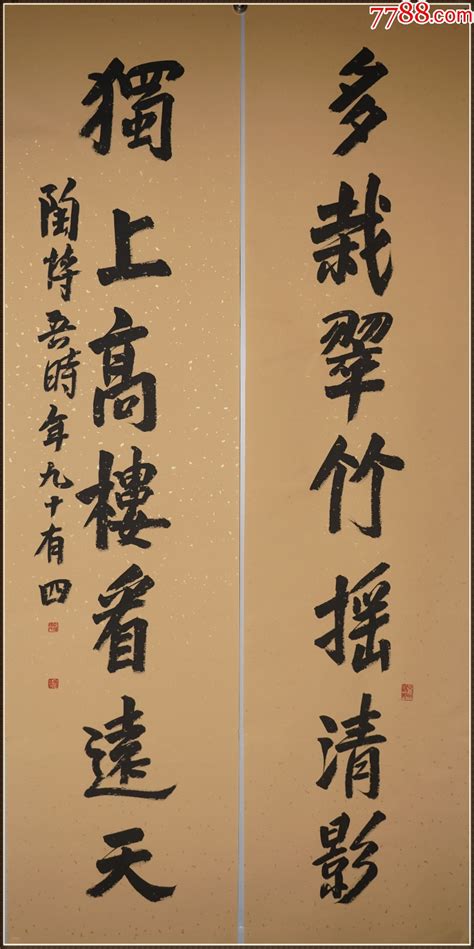 7788.com
多栽翠竹摇清影
獨上高樓看遠天
陶博吾時年九十有四